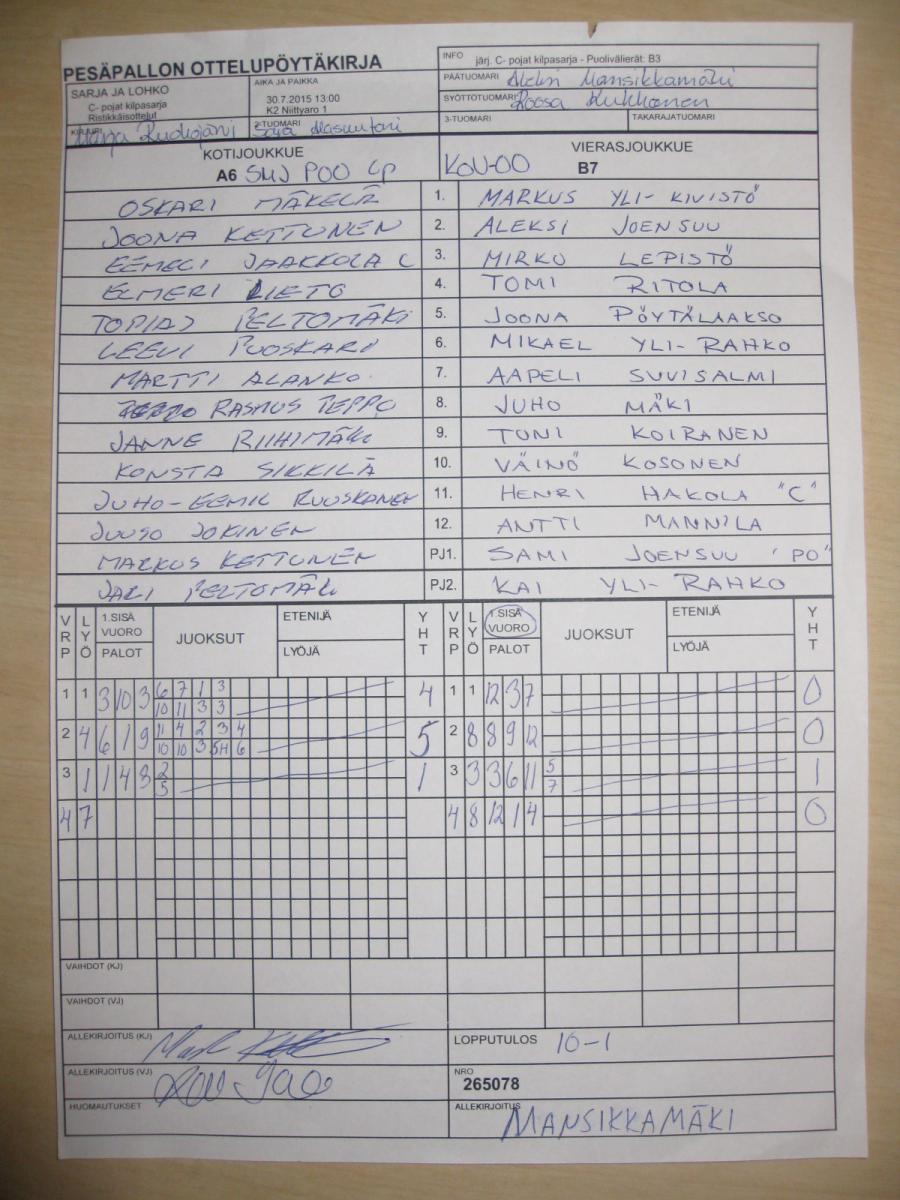 PESÄPALLON OTTELUPÖYTÄKIRJA
INFO järj. C- pojat kilpasarja - Puolivälierät: B3
SARJA JA LOHKO
C- pojat kilpasarja
Ristikkäisottelut
AIKA JA PAIKKA
30.7.2015 13:00
K2 Niittyaro 1
PÄÄTUOMARI Mansikkamäki
SYÖTTÖTUOMARI Roosa Kukkonen
KIRJURI Marja
2-TUOMARI Masuutari
3-TUOMARI
TAKARAJATUOMARI
KOTIJOUKKUE
A6 SMJ POO CP
VIERASJOUKKUE
KOU-OO B7
OSKARI MÄKELÄ 1. MARKUS YLI-KIVISTÖ
JOONA KETTUNEN 2. ALEKSI JOENSUU
EEMELI JAAKKOLA C 3. MIRKO LEPISTÖ
ELMERI LIETO 4. TOMI RITOLA
TOPIAS PELTOMÄKI 5. JOONA PÖYTÄLAAKSO
LEEVI PUOSKARI 6. MIKAEL YLI-RAHKO
MARTTI ALANKO 7. AAPELI SUVISALMI
RASMUS TEPPO 8. JUHO MÄKI
JANNE RIIHIMÄKI 9. TONI KOIRANEN
KONSTA SIKKILÄ 10. VÄINÖ KOSONEN
JUHO-EEMIL RUUSKANEN 11. HENRI HAKOLA "C"
JUUSO JOKINEN 12. ANTTI MANNILA
MARKUS KETTUNEN PJ1. SAMI JOENSUU "PO"
JARI PELTOMÄKI PJ2. KAI YLI-RAHKO
VRP LYÖ 1.SISÄ VUORO PALOT JUOKSUT ETENIJÄ LYÖJÄ YHT VRP LYÖ 1.SISÄ VUORO PALOT JUOKSUT ETENIJÄ LYÖJÄ YHT
1 1 3 10 3 6 7 1 3 4 1 1 12 3 7 0
10 11 3 3
2 4 6 1 9 11 4 2 3 4 5 2 8 8 9 12 0
10 10 3 5H 6
3 1 1 4 8 2 1 3 3 3 6 11 5 1
5 7
4 7 4 8 12 1 4 0
VAIHDOT (KJ)
VAIHDOT (VJ)
ALLEKIRJOITUS (KJ)
LOPPUTULOS 10-1
ALLEKIRJOITUS (VJ)
NRO
265078
HUOMAUTUKSET
ALLEKIRJOITUS MANSIKKAMÄKI